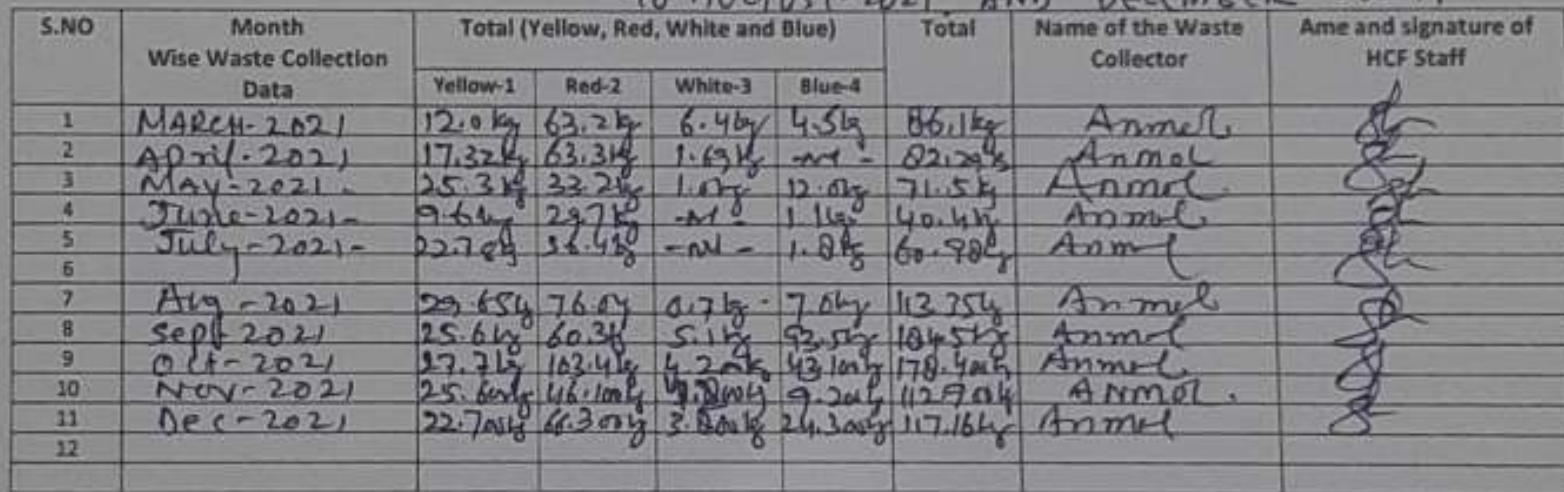 TO AUGUST-2021 AND DECEMBER
S.NO Month Wise Waste Collection Data Total (Yellow, Red, White and Blue) Total Name of the Waste Collector Ame and signature of HCF Staff
Yellow-1 Red-2 White-3 Blue-4
1 MARCH-2021 12.0kg 63.2kg 6.4kg 4.5kg 86.1kg Anmol
2 April-2021 17.32kg 63.3kg 1.69kg -Nil- Anmol
3 MAY-2021 25.3kg 33.2kg 1.0kg 12.0kg 71.5kg Anmol
4 June-2021- 9.6kg 29.7kg -Nil- 1.1kg 40.4kg Anmol
5 July-2021- 22.78kg 36.4kg -Nil- 1.8kg 60.98kg Anmol
6
7 Aug-2021 29.65kg 76.0kg 0.7kg 7.0kg 113.35kg Anmol
8 Sept-2021 25.6kg 60.3kg 5.1kg Anmol
9 Oct-2021 27.7kg 103.4kg 4.200kg 43.100kg 178.400kg Anmol
10 Nov-2021 25.600kg 46.100kg 9.200kg Anmol.
11 Dec-2021 22.700kg 66.300kg 3.800kg 24.300kg 117.16kg Anmol
12